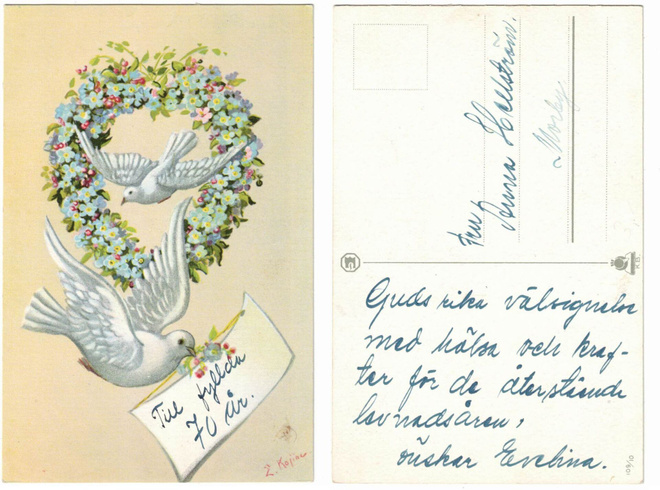 Till fyllda
70 år.
Fru
Anna Hellström.
Norby
Guds rika välsignelse
med hälsa och kraf-
ter för de återstående
levnadsåren,
önskar Evelina.
109/10